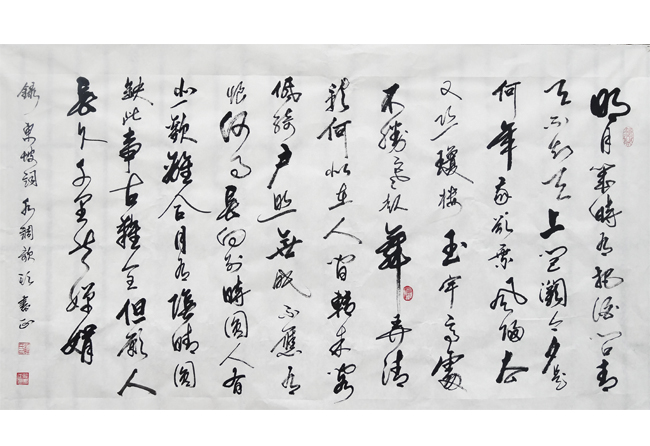 明月幾時有把酒問青
天不知天上宮闕今夕是
何年我欲乘風歸去
又恐瓊樓玉宇高處
不勝寒起舞弄清
影何似在人間轉朱閣
低綺戶照無眠不應有
恨何事長向別時圓人有
悲歡離合月有陰晴圓
缺此事古難全但願人
長久千里共嬋娟
錄東坡詞水調歌頭